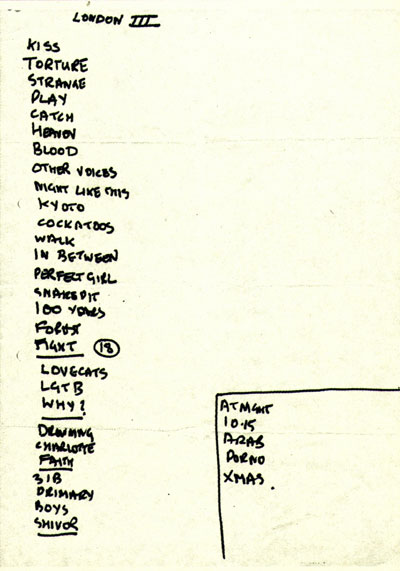 LONDON III
KISS
TORTURE
STRANGE
PLAY
CATCH
HEAVEN
BLOOD
OTHER VOICES
NIGHT LIKE THIS
KYOTO
COCKATOOS
WALK
IN BETWEEN
PERFECT GIRL
SNAKEPIT
100 YEARS
FOREST
FIGHT 18
LOVECATS
LGTB
WHY?
DROWNING
CHARLOTTE
FAITH
3IB
PRIMARY
BOYS
SHIVER
AT NIGHT
10.15
ARAB
PORNO
XMAS